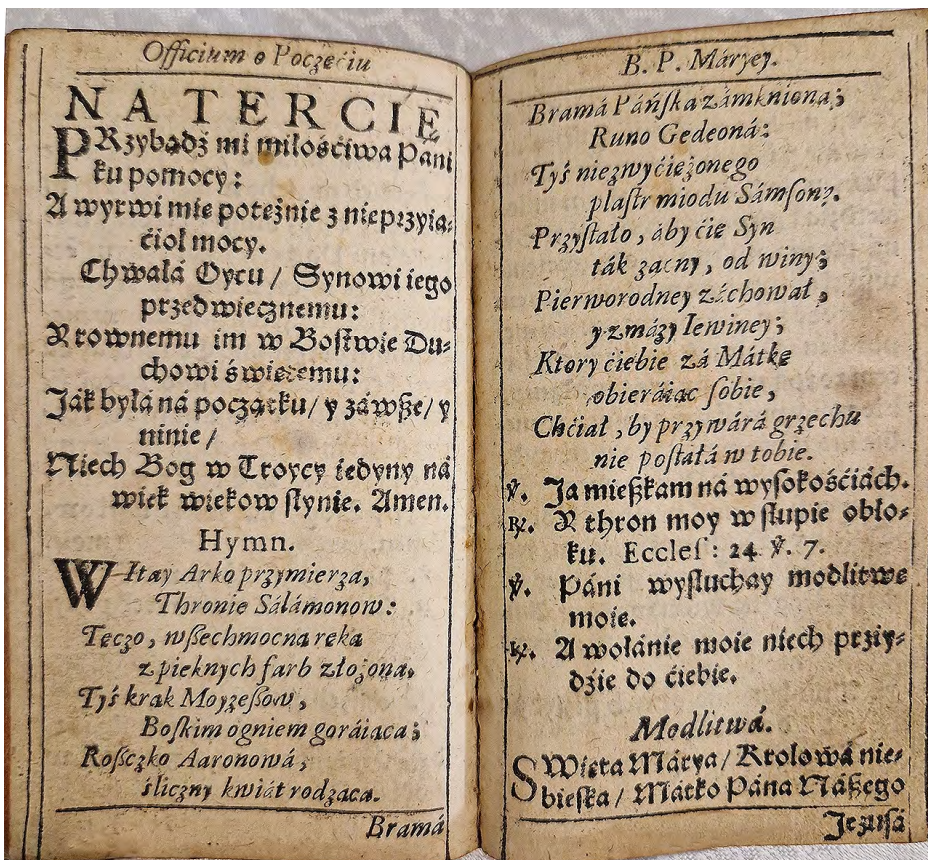 Officium o Poczęćiu
NA TERCIĘ
PRzybądź mi miłośćiwa Pani
ku pomocy:
A wyrwi mie potężnie z nieprzyia⸗
ćioł mocy.
Chwałá Oycu / Synowi iego
przedwiecznemu:
Y rownemu im w Bostwie Du⸗
chowi świętemu:
Ják byłá ná początku / y záwße / y
ninie /
Niech Bog w Troycy iedyny ná
wiek wiekow słynie. Amen.
Hymn.
WItay Arko przymierza,
Thronie Sálámonow:
Tęczo, wßechmocna ręka
z pięknych farb złożona.
Tyś krak Moyzeßow,
Boſkim ogniem goráiąca;
Roſsczko Aaronowá,
śliczny kwiát rodząca.
Bramá
B. P. Máryey.
Bramá Páńſka zámkniona;
Runo Gedeoná:
Tyś niezwyćiężonego
plaſtr miodu Sámſoná.
Przyſtało, áby ćię Syn
ták zacny, od winy;
Pierworodney záchował,
y zmázy Iewiney;
Ktory ćiebie zá Mátkę
obieráiąc ſobie,
Chćiał, by przywárá grzechu
nie poſtáłá w tobie.
℣. Ja mießkam ná wysokośćiách.
℟. Y thron moy w słupie obło⸗
ku. Eccleſ: 24 ℣. 7.
℣. Páni wysłuchay modlitwę
moię.
℟. A wołánie moie niech przyi⸗
dzie do ćiebie.
Modlitwá.
SWięta Márya / Krolowá nie⸗
bieska / Mátko Páná Náßego
Jezusá